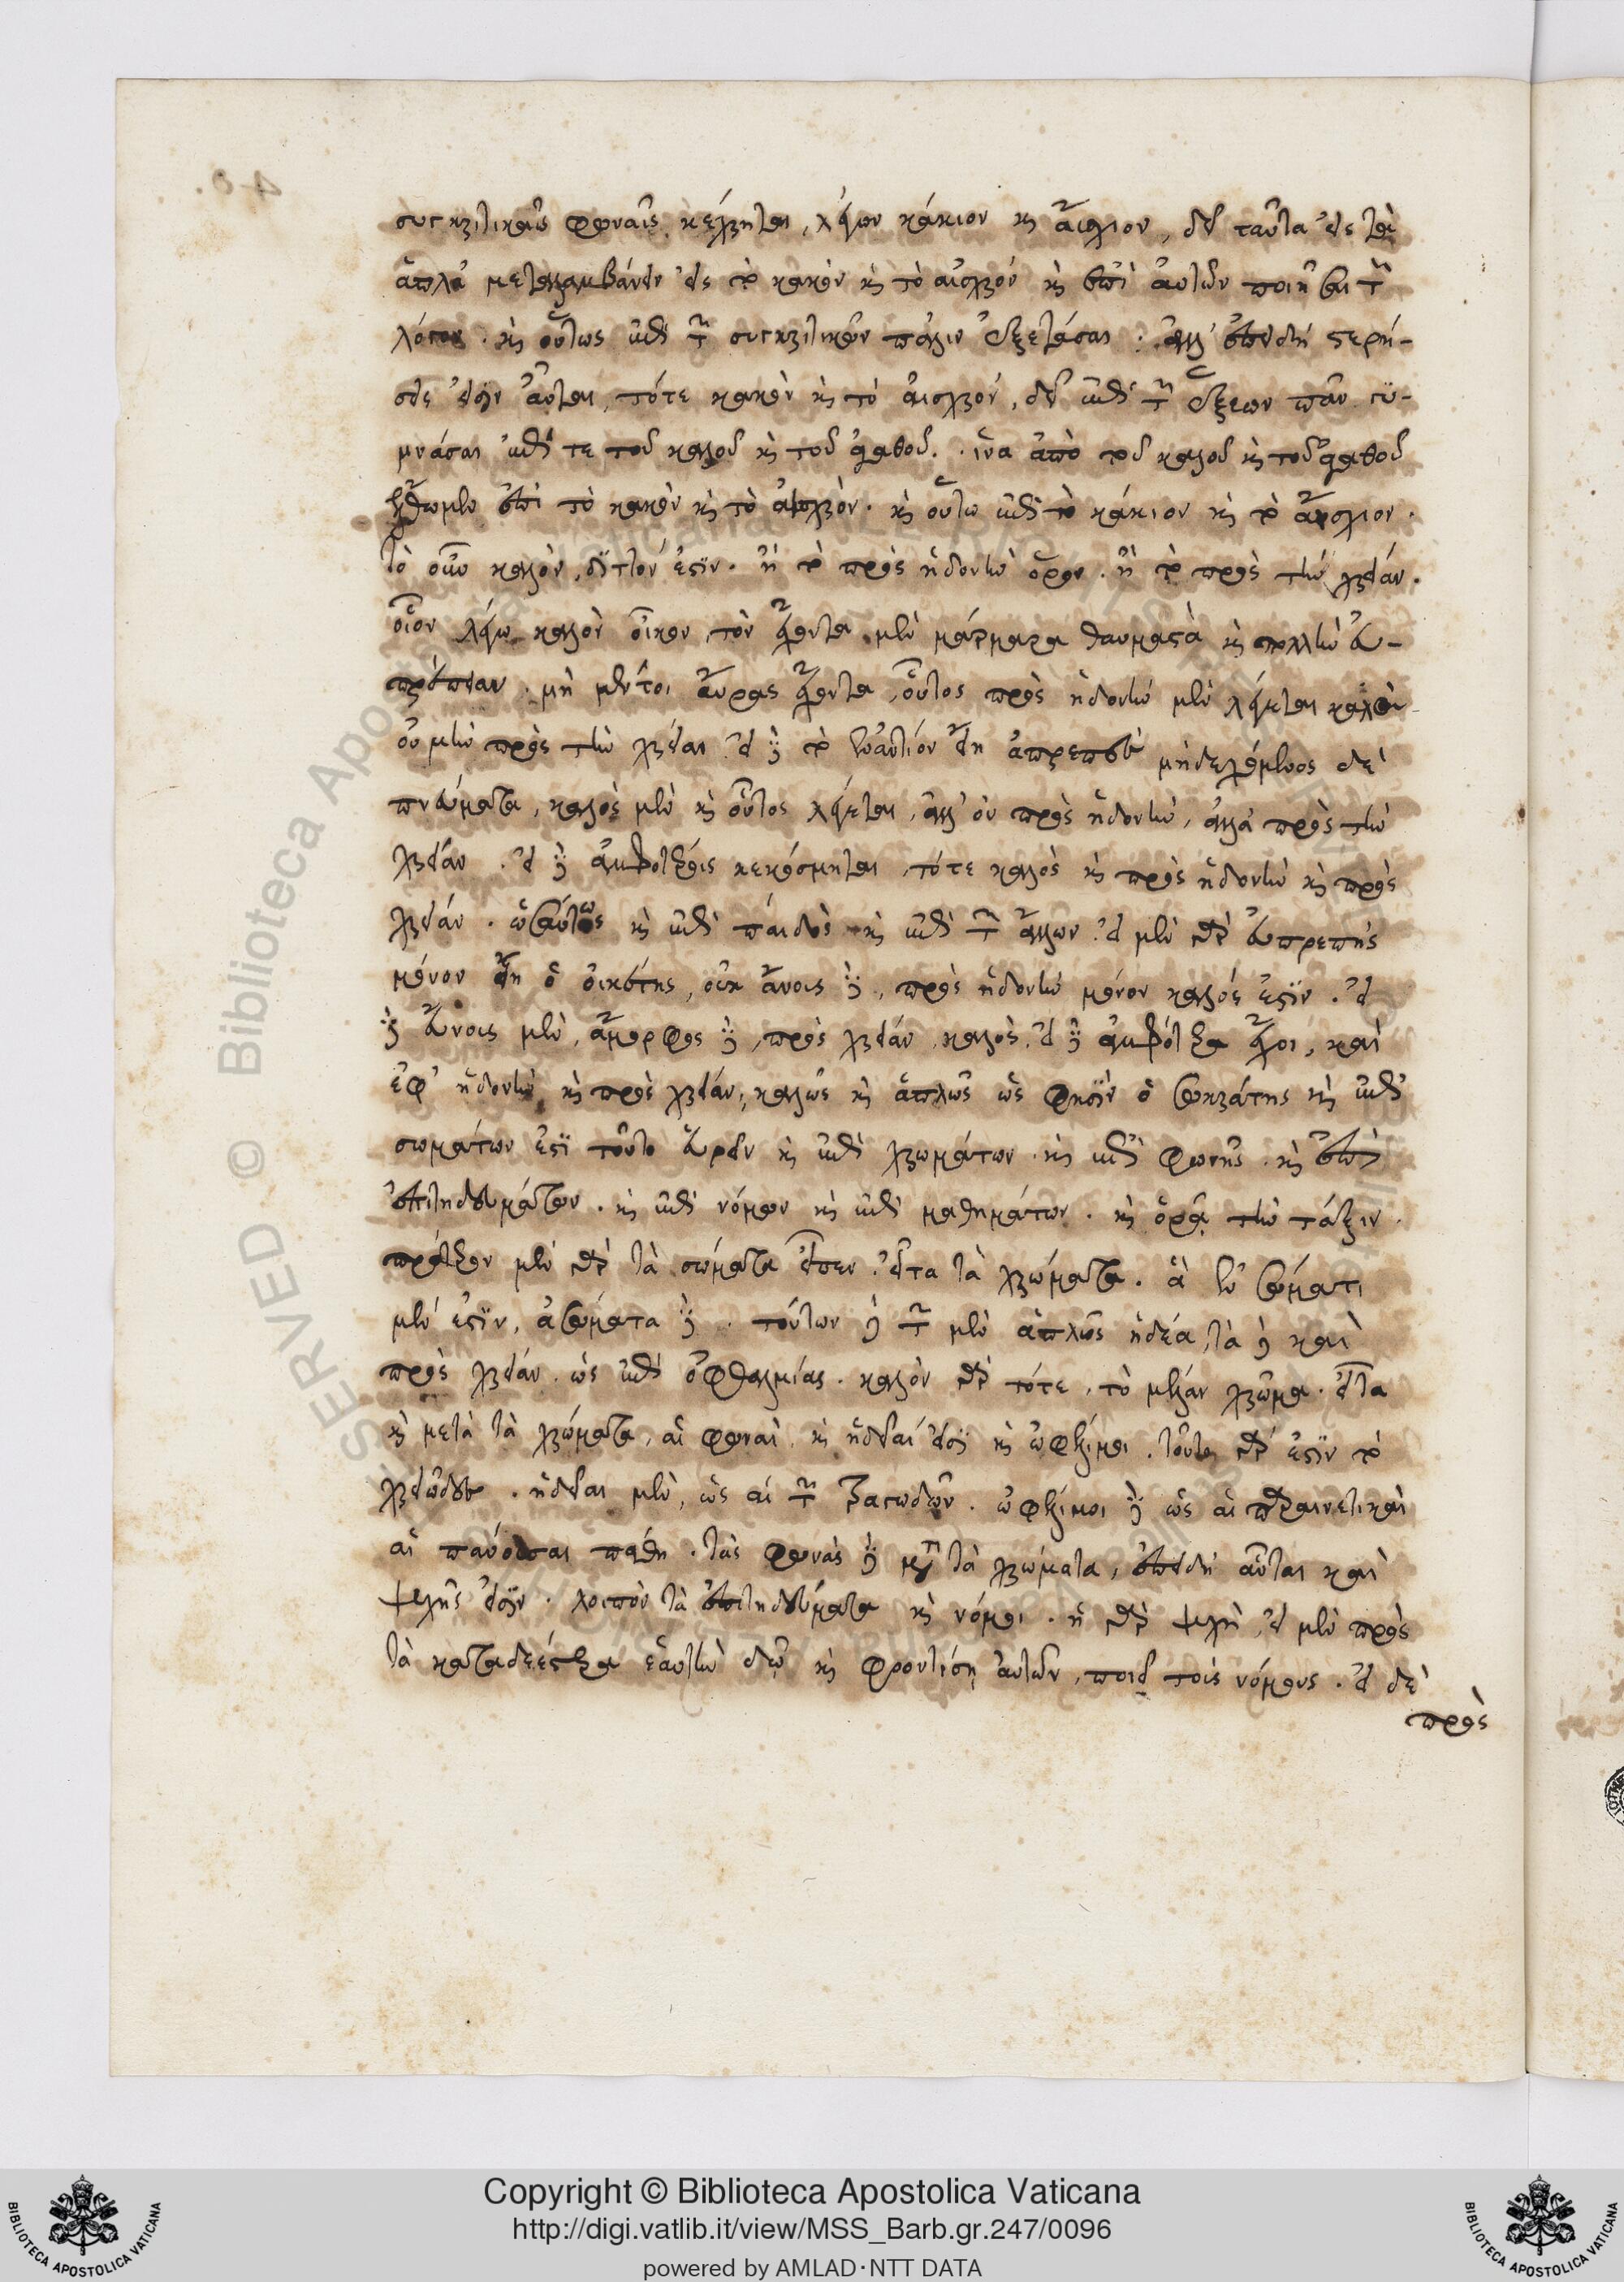 συγκριτικαῖς φωναῖς κέχρηται, λέγων κάκιον καὶ αἴσχιον, δεῖ ταῦτα εἰς τὰ
ἁπλᾶ μεταλαμβάνειν εἰς τὸ κακὸν καὶ τὸ αἰσχρόν καὶ ἐπὶ αὐτῶν ποιῆσαι τὸν
λόγον. καὶ οὕτως ἐπὶ τῶν συγκριτικῶν πάλιν ἐξετάσαι. ἀλλ' ἐπειδὴ στερή-
σεις εἰσὶν αὗται, τό τε κακὸν καὶ τὸ αἰσχρόν, δεῖ ἐπὶ τῶν ἕξεων πᾶν γυ-
μνάσαι ἐπί τε τοῦ καλοῦ καὶ τοῦ ἀγαθοῦ. ἵνα ἀπὸ τοῦ καλοῦ καὶ τοῦ ἀγαθοῦ
ἔλθωμεν ἐπὶ τὸ κακὸν καὶ τὸ αἰσχρὸν. καὶ οὕτω ἐπὶ τὸ κάκιον καὶ τὸ αἴσχιον.
τὸ οὖν καλὸν, διττόν ἐστιν. ἢ τὸ πρὸς ἡδονὴν ὁρῶν. ἢ τὸ πρὸς τὴν χρείαν.
οἷον λέγω καλὸν οἶκον, τὸν ἔχοντα μὲν μάρμαρα θαυμαστὰ καὶ πολλὴν εὐ-
πρέπειαν. μὴ μέντοι αὔρας ἔχοντα, οὗτος πρὸς ἡδονὴν μὲν λέγεται καλὸς
οὐ μὴν πρὸς τὴν χρείαν. εἰ δὲ τὸ ἐναντίον εἴη ἀπρεπὲς μὴ δεχόμενος δὲ
πνεύματα, καλὸς μὲν καὶ οὗτος λέγεται, ἀλλ' οὐ πρὸς ἡδονὴν, ἀλλὰ πρὸς τὴν
χρείαν. εἰ δὲ ἀμφοτέροις κεκόσμηται, τότε καλὸς καὶ πρὸς ἡδονὴν καὶ πρὸς
χρείαν. ὡσαύτως καὶ ἐπὶ παιδὸς καὶ ἐπὶ τῶν ἄλλων. εἰ μὲν γὰρ εὐπρεπὴς
μόνον εἴη ὁ οἰκέτης, οὐκ εὔνοις δὲ, πρὸς ἡδονὴν μόνον καλός ἐστιν. εἰ
δὲ εὔνοις μὲν, ἄμορφος δὲ, πρὸς χρείαν καλὸς. εἰ δὲ ἀμφότερα ἔχοι, καὶ
ἐφ' ἡδονὴν καὶ πρὸς χρείαν, καλῶς καὶ ἁπλῶς ὥς φησὶν ὁ Σωκράτης καὶ ἐπὶ
σωμάτων ἐστὶ τοῦτο εὑρεῖν καὶ ἐπὶ χρωμάτων. καὶ ἐπὶ φωνῆς. καὶ ἐπὶ
ἐπιτηδευμάτων. καὶ ἐπὶ νόμων καὶ ἐπὶ μαθημάτων. καὶ ὅρα τὴν τάξιν.
πρότερον μὲν γὰρ τὰ σώματα εἶπεν. εἶτα τὰ χρώματα. ἃ ἐν σώματι
μέν ἐστιν, ἀσώματα δὲ. τούτων δὲ τῶν μὲν ἁπλῶς ἡδέα, τὰ δὲ καὶ
πρὸς χρείαν. ὡς ἐπὶ ὀφθαλμίας. καλὸν γὰρ τότε, τὸ μέλαν χρῶμα. εἶτα
καὶ μετὰ τὰ χρώματα, αἱ φωναὶ, καὶ ἡδεῖαί εἰσι καὶ ὠφέλιμοι. τοῦτο γάρ ἐστιν τὸ
χρειῶδες. ἡδεῖαι μὲν, ὡς αἱ τῶν ῥαψωδῶν. ὠφέλιμοι δὲ ὡς αἱ παραινετικαὶ
αἱ παύουσαι πάθη. τὰς φωνὰς δὲ μετὰ τὰ χρώματα, ἐπειδὴ αὗται καὶ
ψυχῆς εἰσὶν. λοιπὸν τὰ ἐπιτηδεύματα καὶ νόμοι. ἡ γὰρ ψυχὴ, εἰ μὲν πρὸς
τὰ καταδεέστερα ἑαυτὴν δῷ καὶ φροντίσῃ αὐτῶν, ποιεῖ τοὺς νόμους. εἰ δὲ
πρὸς
Copyright © Biblioteca Apostolica Vaticana
http://digi.vatlib.it/view/MSS_Barb.gr.247/0096
powered by AMLAD·NTT DATA